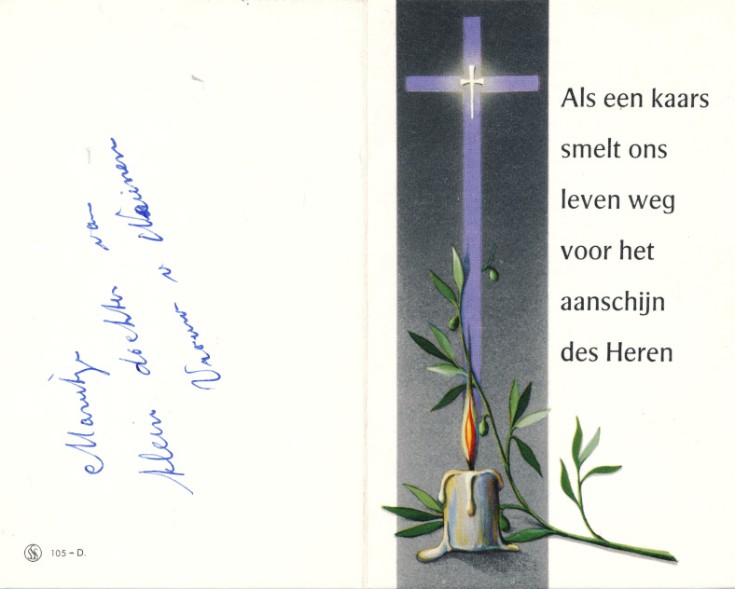 Marietje
klein dochter van
Vrouw v
105 – D.
Als een kaars
smelt ons
leven weg
voor het
aanschijn
des Heren